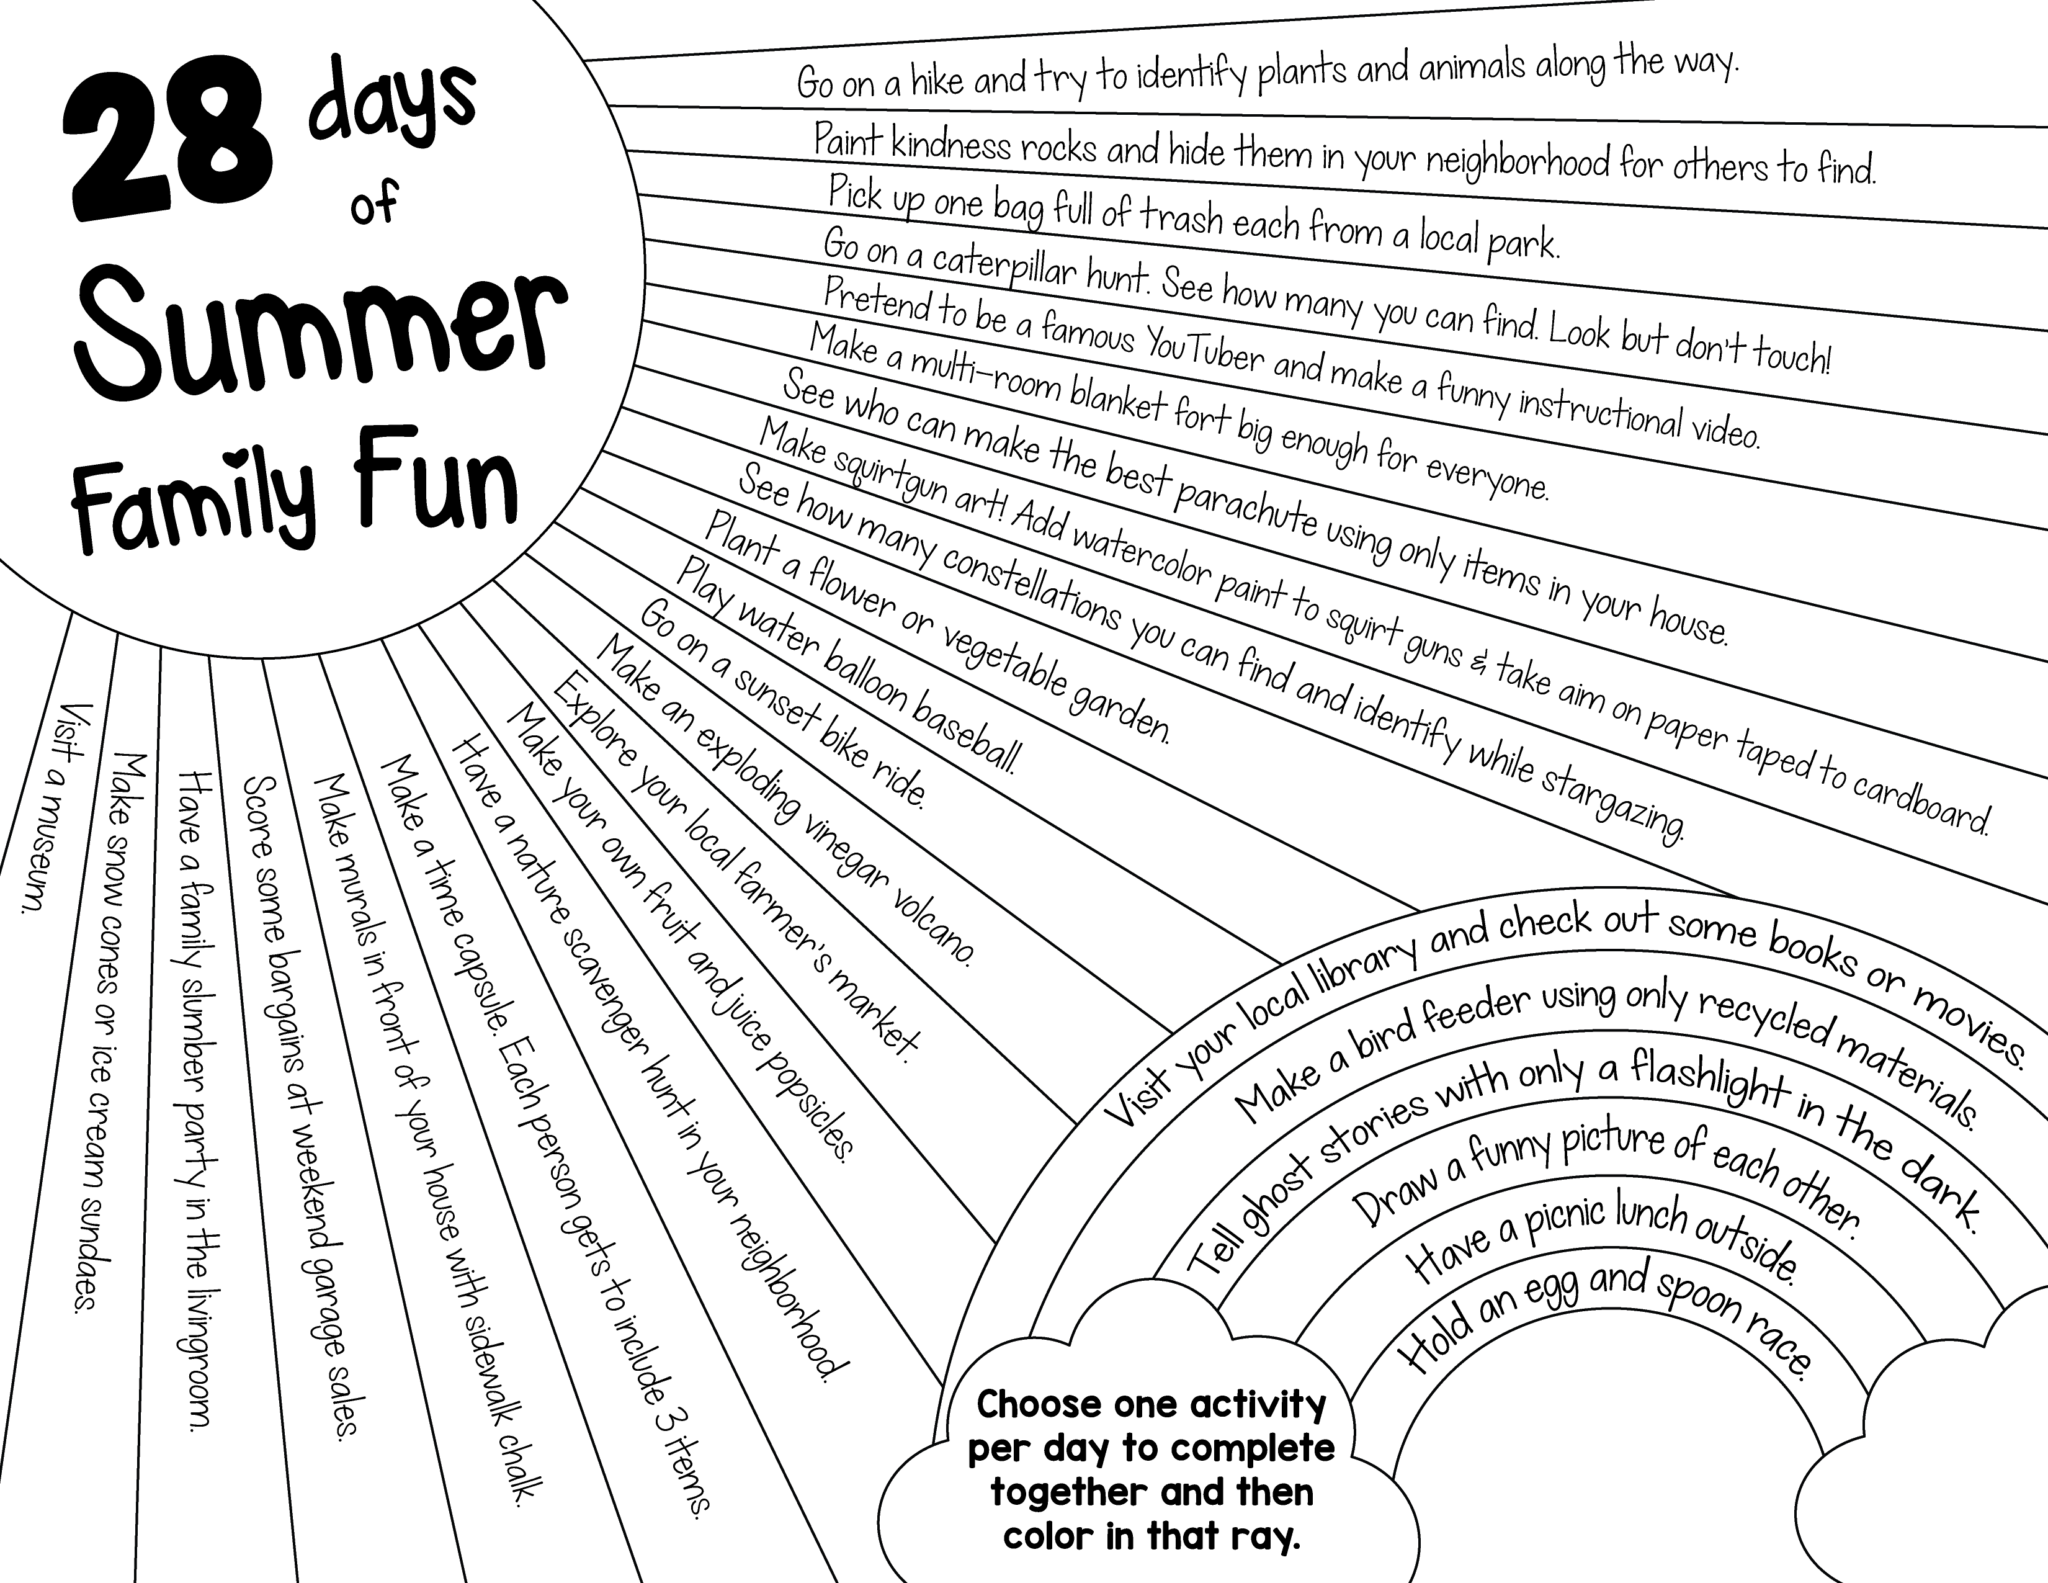 28 days
of
Summer
Family Fun
Go on a hike and try to identify plants and animals along the way.
Paint kindness rocks and hide them in your neighborhood for others to find.
Pick up one bag full of trash each from a local park.
Go on a caterpillar hunt. See how many you can find. Look but don't touch!
Pretend to be a famous YouTuber and make a funny instructional video.
Make a multi-room blanket fort big enough for everyone.
See who can make the best parachute using only items in your house.
Make squirtgun art! Add watercolor paint to squirt guns & take aim on paper taped to cardboard.
See how many constellations you can find and identify while stargazing.
Plant a flower or vegetable garden.
Play water balloon baseball.
Go on a sunset bike ride.
Make an exploding vinegar volcano.
Explore your local farmer's market.
Make your own fruit and juice popsicles.
Have a nature scavenger hunt in your neighborhood.
Make a time capsule. Each person gets to include 3 items.
Make murals in front of your house with sidewalk chalk.
Score some bargains at weekend garage sales.
Have a family slumber party in the livingroom.
Make snow cones or ice cream sundaes.
Visit a museum.
Visit your local library and check out some books or movies.
Make a bird feeder using only recycled materials.
Tell ghost stories with only a flashlight in the dark.
Draw a funny picture of each other.
Have a picnic lunch outside.
Hold an egg and spoon race.
Choose one activity
per day to complete
together and then
color in that ray.